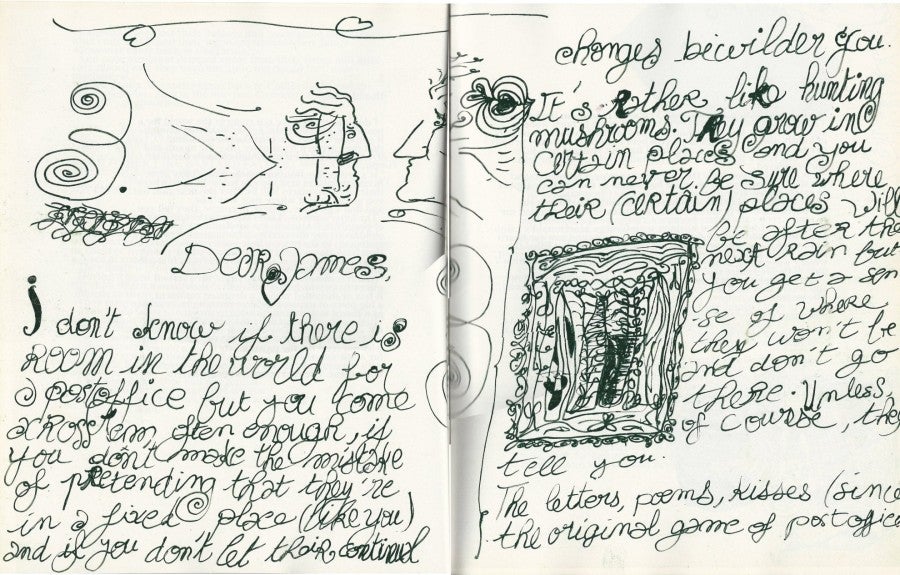 Dear James,
I don't know if there is
room in the world for
a postoffice but you come
across 'em, often enough, if
you don't make the mistake
of pretending that they're
in a fixed place (like you)
and if you don't let their continual
changes bewilder you.
It's rather like hunting
mushrooms. They grow in
certain places and you
can never be sure where
their (certain) places will
be after the
next rain but
you get a sen
-se of where
they won't be
and don't go
there. Unless,
of course, they
tell you.
The letters, poems, kisses (since
the original game of postoffice